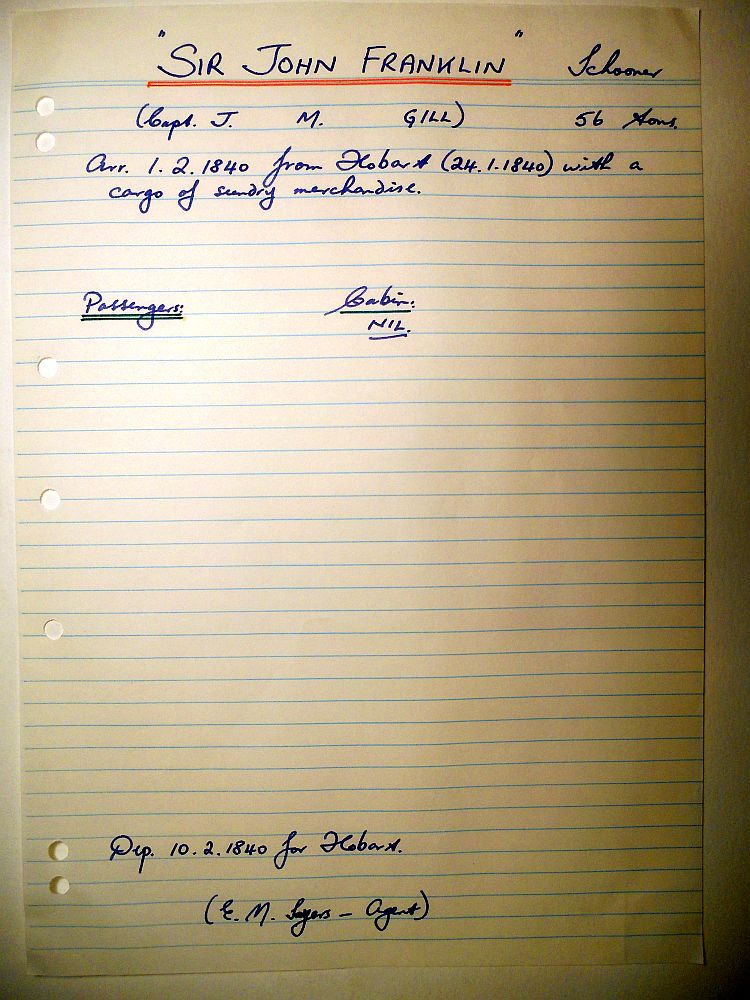 "SIR JOHN FRANKLIN" Schooner
(Capt. J. M. GILL) 56 tons.
Arr. 1.2.1840 from Hobart (24.1.1840) with a
cargo of sundry merchandise.
Passengers: Cabin:
NIL.
Dep. 10.2.1840 for Hobart.
(E. M. Sayers - Agent)